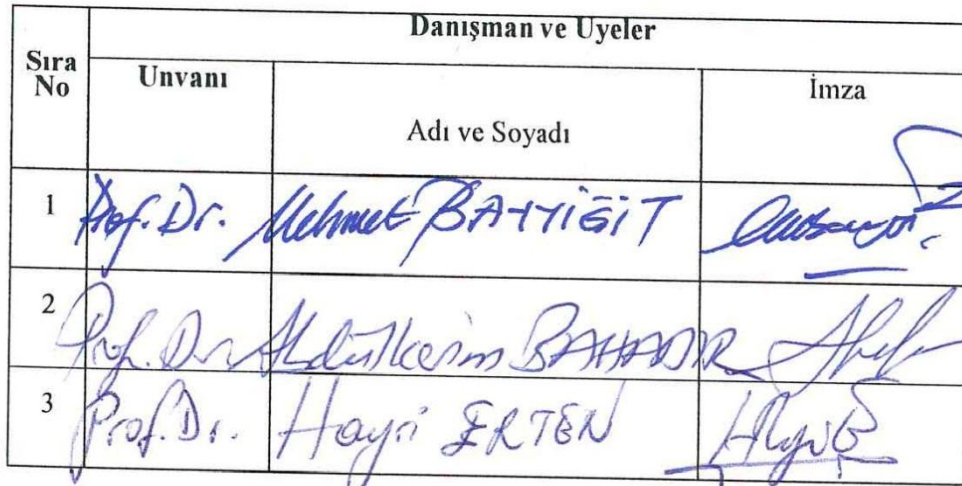 Danışman ve Üyeler
Sıra No Unvanı Adı ve Soyadı İmza
1 Prof. Dr. Mehmet BAYYİĞİT
2 Prof. Dr. Abdülkerim BAHADIR
3 Prof. Dr. Hayri ERTEN